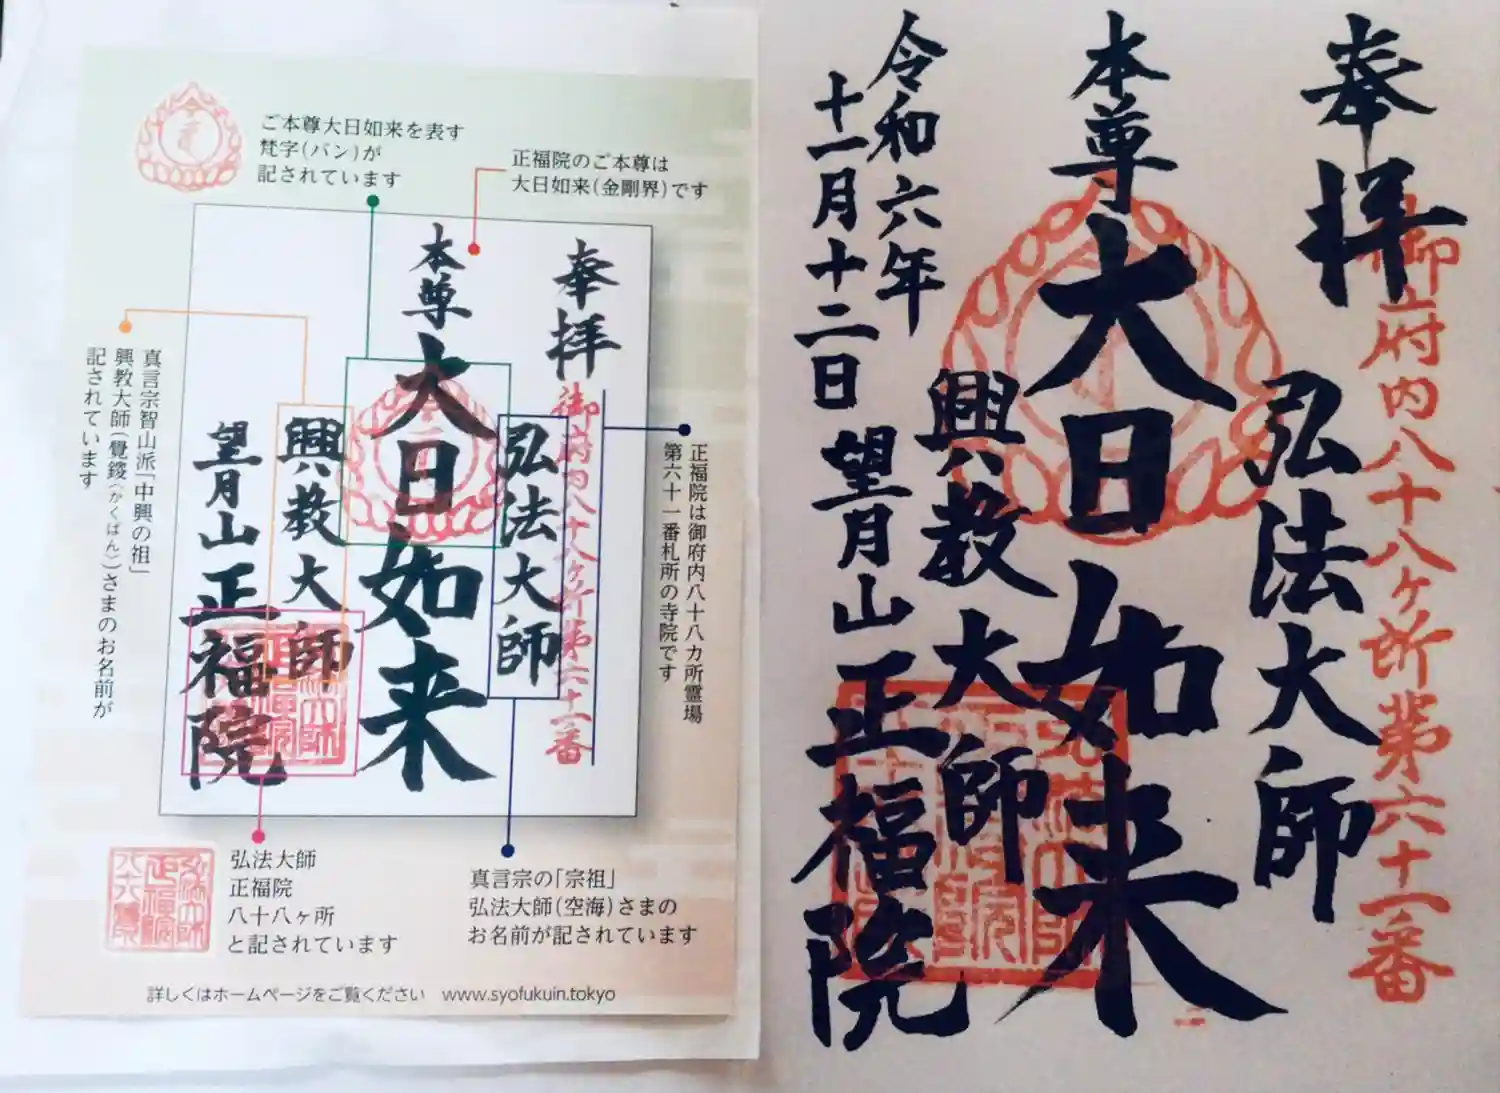 ご本尊大日如来を表す
梵字(バン)が
記されています
正福院のご本尊は
大日如来(金剛界)です
奉拝
御府内八十八ヶ所第六十一番
弘法大師
本尊
大日如来
興教大師
望月山正福院
真言宗智山派「中興の祖」
興教大師(覺鑁(かくばん))さまのお名前が
記されています
正福院は御府内八十八カ所霊場
第六十一番札所の寺院です
弘法大師
正福院
八十八ヶ所
と記されています
真言宗の「宗祖」
弘法大師(空海)さまの
お名前が記されています
詳しくはホームページをご覧ください www.syofukuin.tokyo
奉拝
御府内八十八ヶ所第六十一番
弘法大師
本尊
大日如来
興教大師
令和六年
十一月十二日
望月山正福院